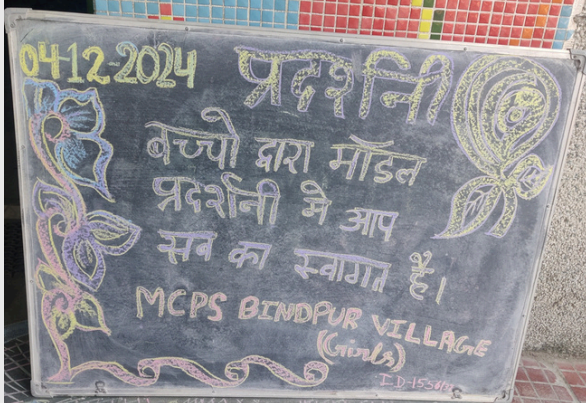 04-12-2024 प्रदर्शनी
बच्चो द्वारा मॉडल
प्रदर्शनी मे आप
सब का स्वागत है।
MCPS BINDPUR VILLAGE
(Girls)